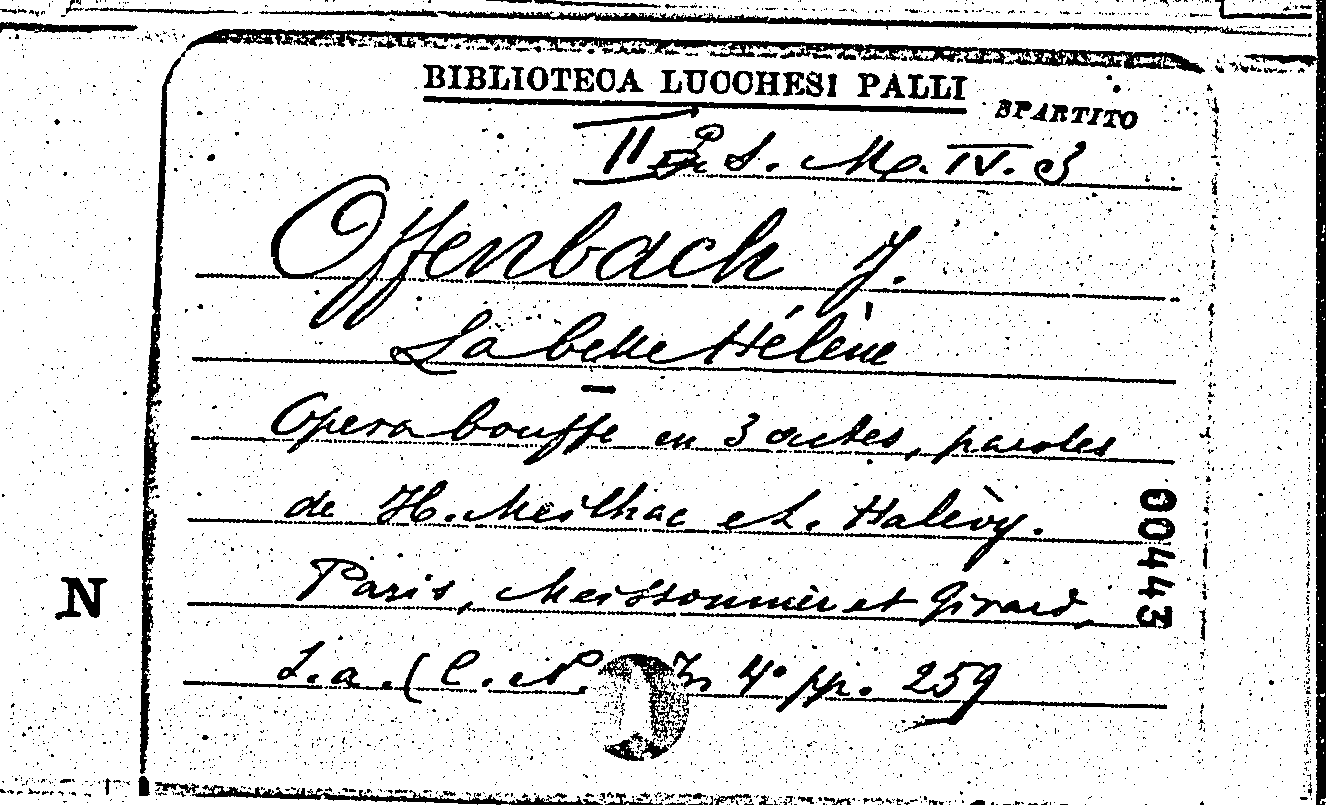 BIBLIOTECA LUCCHESI PALLI
SPARTITO
II S. Mp. IV. 3
Offenbach J.
La belle Hélène
Opera bouffe en 3 actes, paroles
de H. Meilhac et L. Halèvy.
Paris, Meissonnièr et Girard,
S.a. (C. N. In 4° pp. 259
00443
N